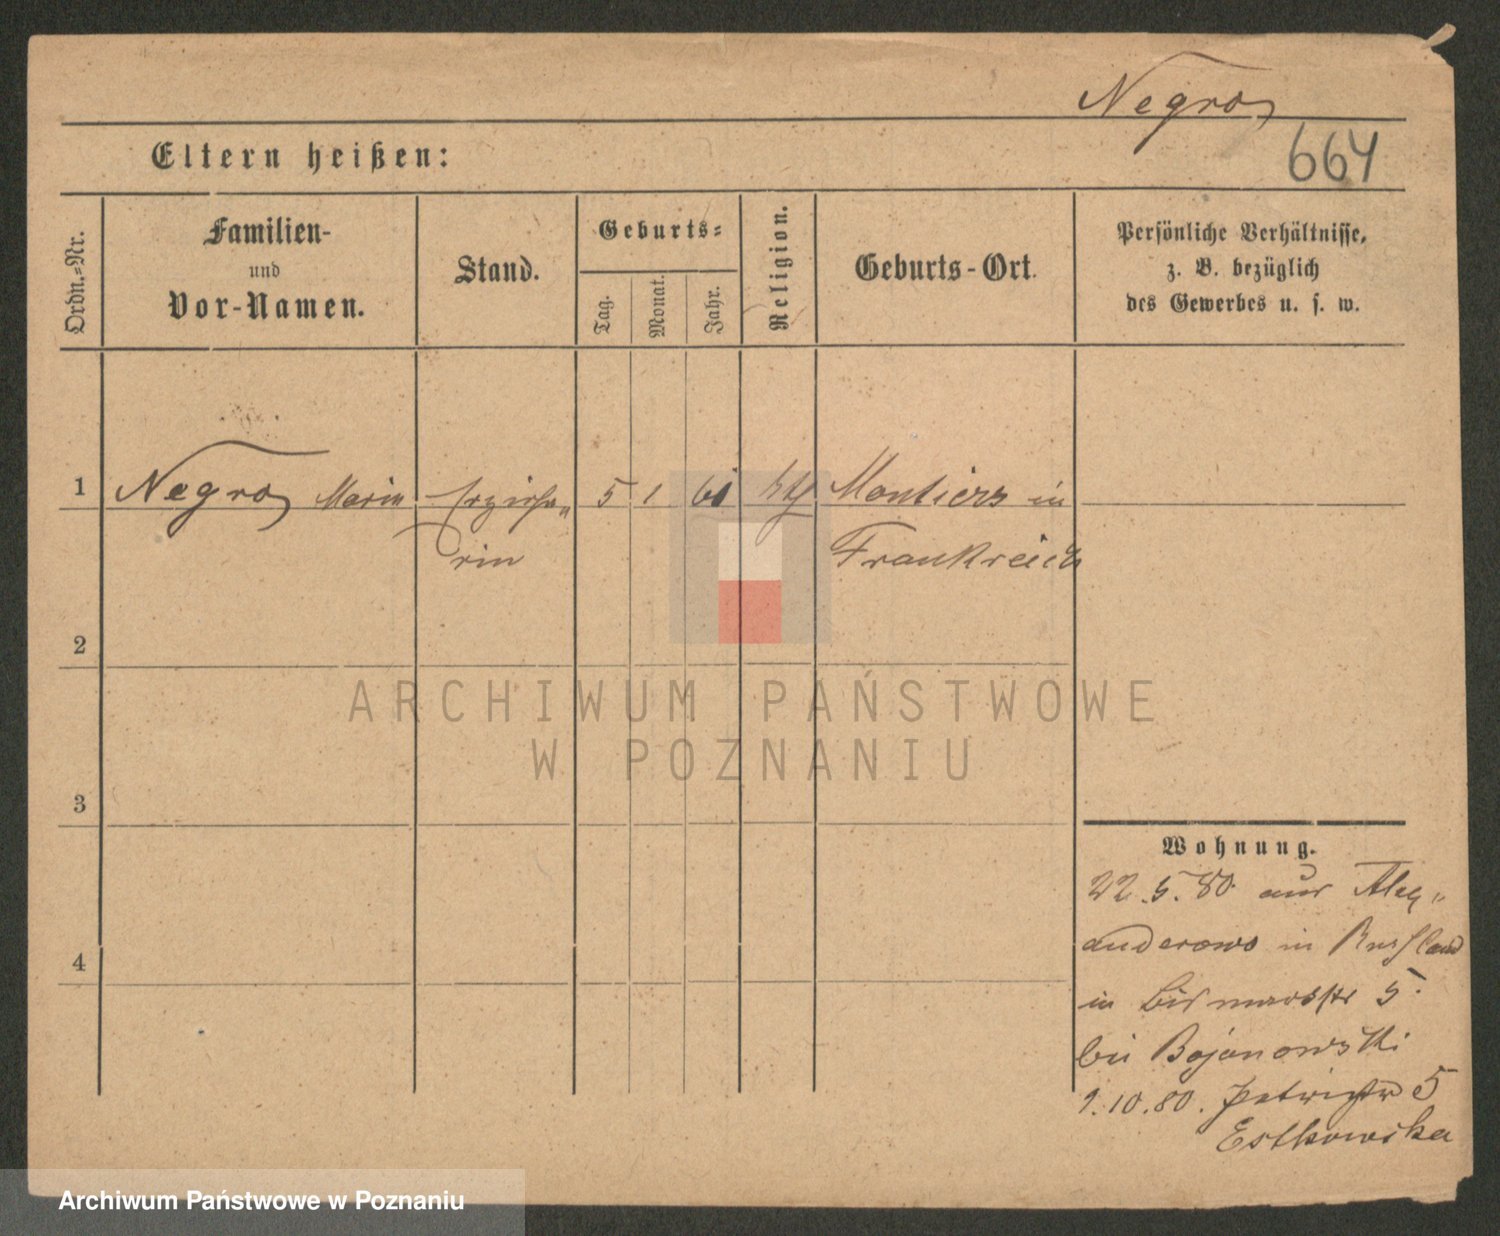 Negro
664
Eltern heißen:
Ordn.=Nr.
Familien-
und
Vor-Namen.
Stand.
Geburts=
Tag.
Monat.
Jahr.
Religion.
Geburts-Ort.
Persönliche Verhältnisse,
z. B. bezüglich
des Gewerbes u. s. w.
1 Negro Marie Erziehe„ 5 1 60 kth Montiers in
rin Frankreich
2
ARCHIWUM PAŃSTWOWE
W POZNANIU
3
Wohnung.
22.5.80 aus Alex„
anderowo in Russland
4
in Bismarckstr 5.
bei Bojanowski
1.10.80. Petristr 5
Estkowska
Archiwum Państwowe w Poznaniu